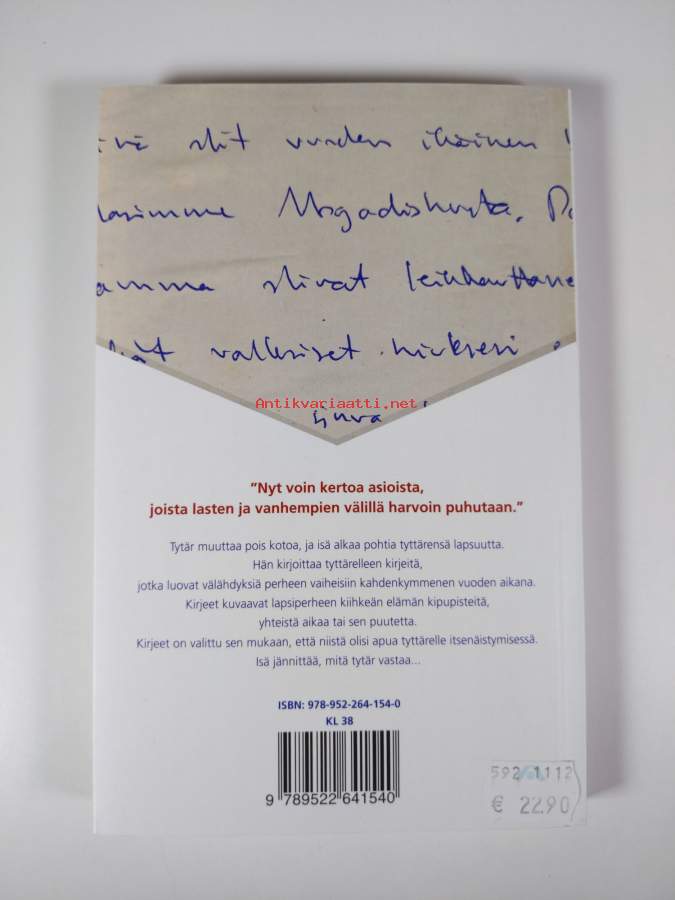 slit vuoden ikäinen
Mogadishusta.
amma olivat leikkauttane
valkoiset hiukseni
Antikvariaatti.net
"Nyt voin kertoa asioista,
joista lasten ja vanhempien välillä harvoin puhutaan."
Tytär muuttaa pois kotoa, ja isä alkaa pohtia tyttärensä lapsuutta.
Hän kirjoittaa tyttärelleen kirjeitä,
jotka luovat välähdyksiä perheen vaiheisiin kahdenkymmenen vuoden aikana.
Kirjeet kuvaavat lapsiperheen kiihkeän elämän kipupisteitä,
yhteistä aikaa tai sen puutetta.
Kirjeet on valittu sen mukaan, että niistä olisi apua tyttärelle itsenäistymisessä.
Isä jännittää, mitä tytär vastaa...
ISBN: 978-952-264-154-0
KL 38
9 789522 641540
592 1112
€ 22.90